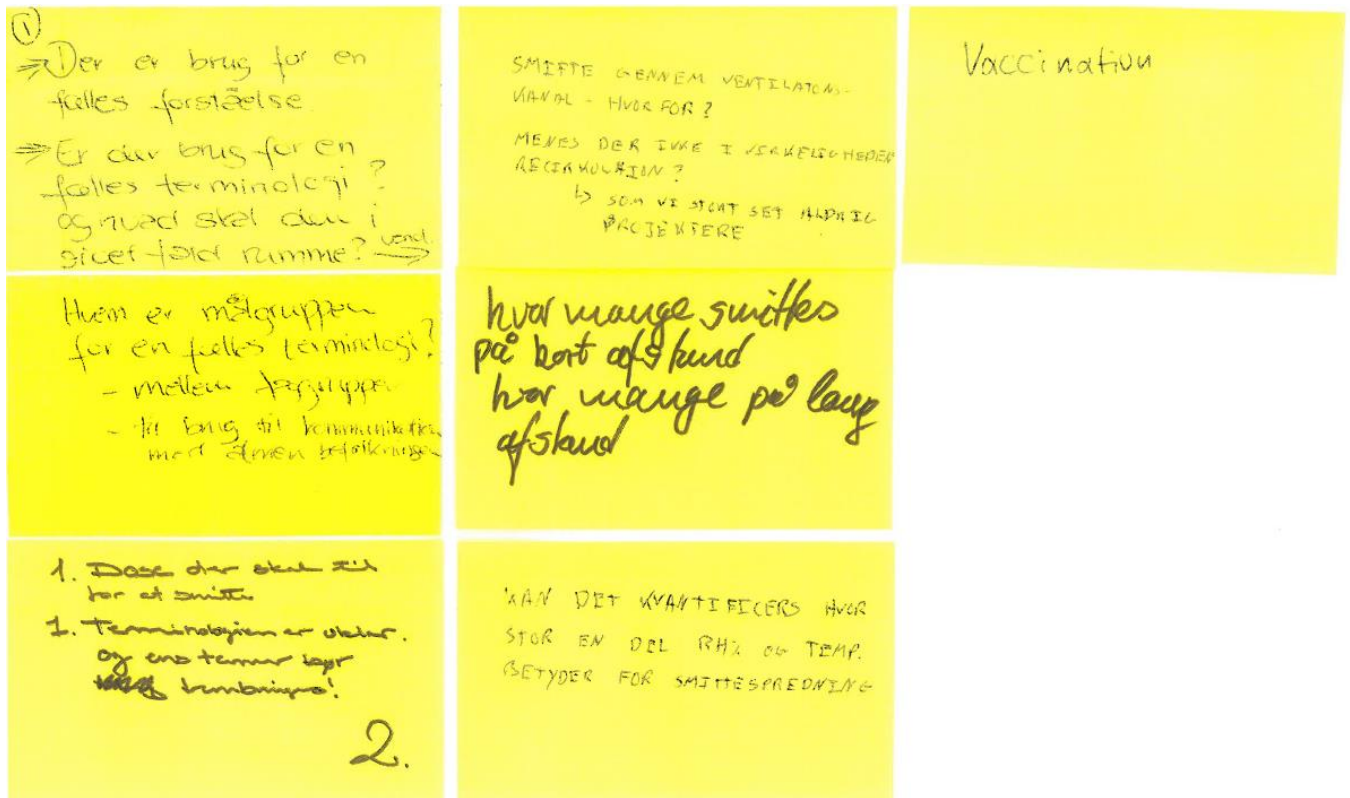 1
⇒ Der er brug for en
fælles forståelse
⇒ Er der brug for en
fælles terminologi?
og hvad skal den i
givet fald rumme? vend →
Hvem er målgruppen
for en fælles terminologi?
- mellem faggrupper
- til brug til kommunikation
med almen befolkningen
1. Dosc der skal til
for at smitte
1. Terminologien er uklar.
og ens termer bør
2.
SMITTE GENNEM VENTILATONS-
KANAL - HVORFOR?
MENES DER IKKE I VIRKELIGHEDEN
RECIRKULATION?
↳ SOM VI STORT SET ALDRIG
PROJEKTERE
hvor mange smittes
på kort afstand
hvor mange på lang
afstand
KAN DET KVANTIFICERS HVOR
STOR EN DEL RH% OG TEMP.
BETYDER FOR SMITTESPREDNING
Vaccination